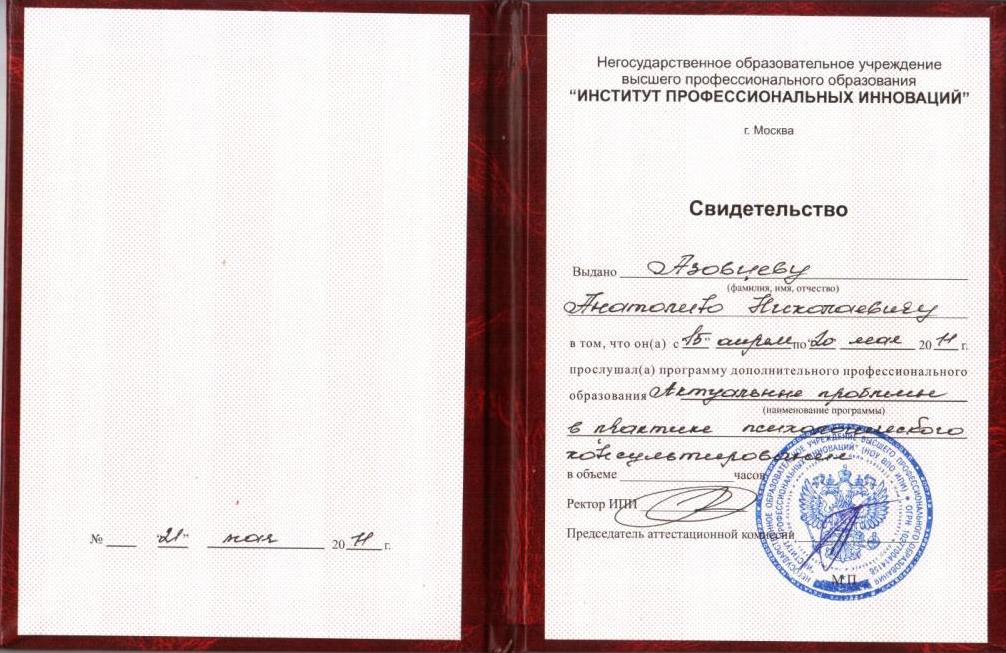 № ____ "21" мая 2011 г.
Негосударственное образовательное учреждение
высшего профессионального образования
“ИНСТИТУТ ПРОФЕССИОНАЛЬНЫХ ИННОВАЦИЙ”
г. Москва
Свидетельство
Выдано Азовцеву
(фамилия, имя, отчество)
Анатолию Николаевичу
в том, что он(а) с "15" апреля по "20 мая 2011 г.
прослушал(а) программу дополнительного профессионального
образования Актуальные проблемы
(наименование программы)
в практике психологического
консультирования
в объеме ____ часов
Ректор ИПИ
Председатель аттестационной комиссии
М.П.
НЕГОСУДАРСТВЕННОЕ ОБРАЗОВАТЕЛЬНОЕ УЧРЕЖДЕНИЕ ВЫСШЕГО ПРОФЕССИОНАЛЬНОГО ОБРАЗОВАНИЯ
"ИНСТИТУТ ПРОФЕССИОНАЛЬНЫХ ИННОВАЦИЙ" (НОУ ВПО ИПИ)